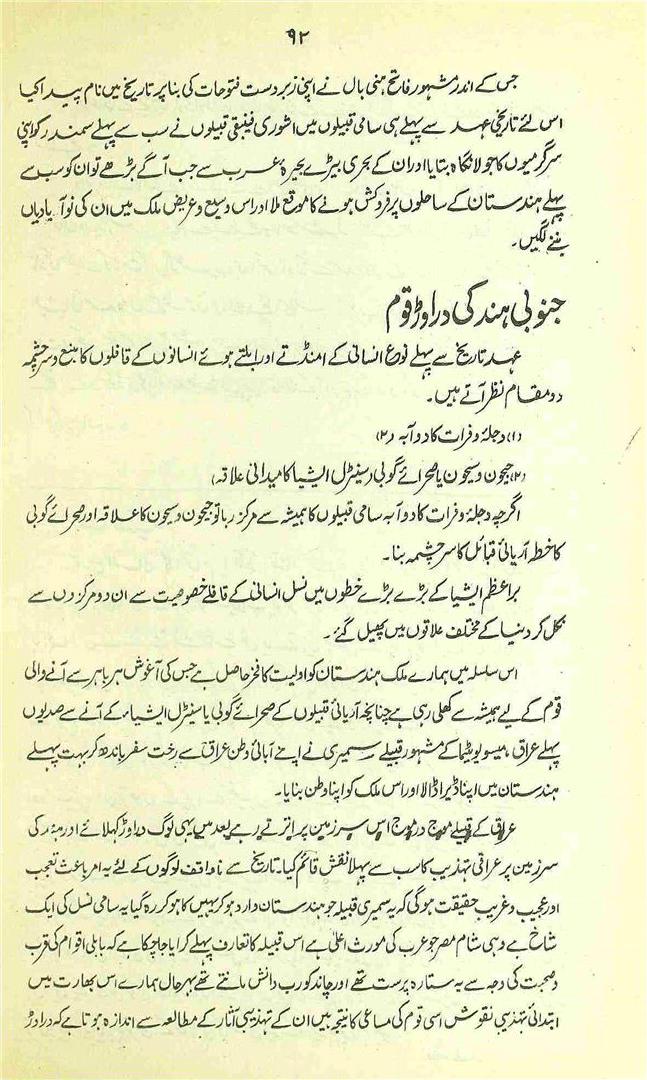 ۹۲
جس کے اندر مشہور فاتح ہنی بال نے اپنی زبردست فتوحات کی بنا پر تاریخ میں نام پیدا کیا
اس لئے تاریخی عہد سے پہلے ہی سامی قبیلوں میں اشوری فینقی قبیلوں نے سب سے پہلے سمندر کو اپنی
سرگرمیوں کا جولانگاہ بنایا اور ان کے بحری بیڑے بحیرۂ عرب سے جب آگے بڑھے تو ان کو سب سے
پہلے ہندستان کے ساحلوں پر فروکش ہونے کا موقع ملا اور اس وسیع و عریض ملک میں ان کی نو آبادیاں
بننے لگیں۔
جنوبی ہند کی دراوڑ قوم
عہد تاریخ سے پہلے نوع انسانی کے امنڈتے اور ابلتے ہوئے انسانوں کے قافلوں کا منبع و سرچشمہ
دو مقام نظر آتے ہیں۔
(۱) دجلۂ و فرات کا دوآبہ (۲)
(۲) جیحون و سیحون یا صحرائے گوبی (سنٹرل ایشیا کا میدانی علاقہ)
اگرچہ دجلۂ و فرات کا دوآبہ سامی قبیلوں کا ہمیشہ سے مرکز رہا تو جیحون و سیحون کا علاقہ اور صحرائے گوبی
کا خطہ آریائی قبائل کا سرچشمہ بنا۔
براعظم ایشیا کے بڑے بڑے خطوں میں نسل انسانی کے قافلے خصوصیت سے ان دو مرکزوں سے
نکل کر دنیا کے مختلف علاقوں میں پھیل گئے۔
اس سلسلہ میں ہمارے ملک ہندستان کو اولیت کا فخر حاصل ہے جس کی آغوش ہر باہر سے آنے والی
قوم کے لیے ہمیشہ سے کھلی رہی ہے چنانچہ آریائی قبیلوں کے صحرائے گوبی یا سنٹرل ایشیاء کے آنے سے صدیوں
پہلے عراق، میسوپوٹیما کے مشہور قبیلے سمیری نے اپنے آبائی وطن عراق سے رخت سفر باندھ کر بہت پہلے
ہندستان میں اپنا ڈیرا ڈالا اور اس ملک کو اپنا وطن بنایا۔
عراق کے قبیلے موج در موج اس سرزمین پر اترتے رہے بعد میں یہی لوگ دراوڑ کہلائے اور ہند کی
سرزمین پر عراقی تہذیب کا سب سے پہلا نقش قائم کیا۔ تاریخ سے ناواقف لوگوں کے لئے یہ امر باعث تعجب
اور عجیب و غریب حقیقت ہوگی کہ یہ سمیری قبیلہ جو ہندستان وارد ہو کر یہیں کا ہو کر رہ گیا یہ سامی نسل کی ایک
شاخ ہے وہی شام مصر جو عرب کی مورث اعلیٰ ہے اس قبیلہ کا تعارف پہلے کرایا جا چکا ہے کہ بابلی اقوام کی قرب
و صحبت کی وجہ سے یہ ستارہ پرست تھے اور چاند کو رب دانش مانتے تھے بہر حال ہمارے اس بھارت میں
ابتدائی تہذیبی نقوش اسی قوم کی مساعی کا نتیجہ ہیں ان کے تہذیبی آثار کے مطالعہ سے اندازہ ہوتا ہے کہ دراوڑ